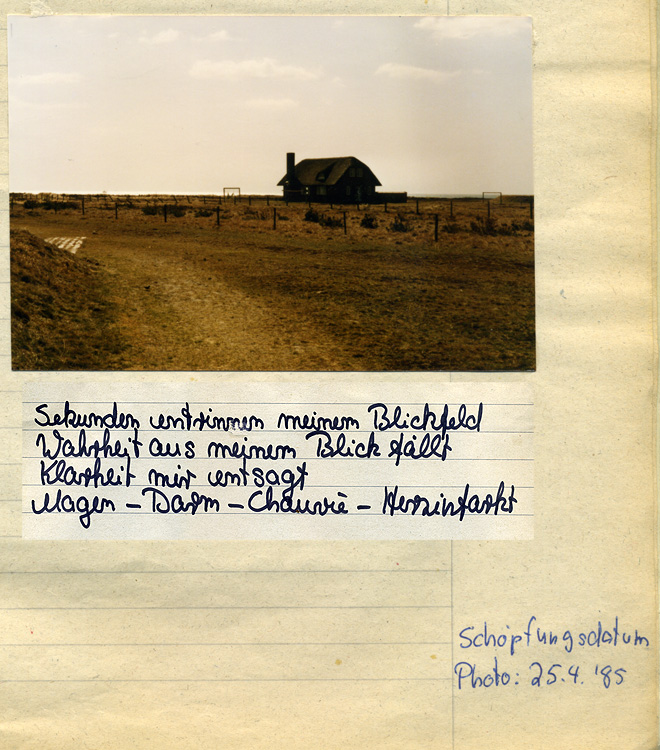 Sekunden entrinnen meinem Blickfeld
Wahrheit aus meinem Blick fällt
Klarheit mir entsagt
Magen – Darm – Chauvie – Herzinfarkt
Schöpfungsdatum
Photo: 25.4. '85